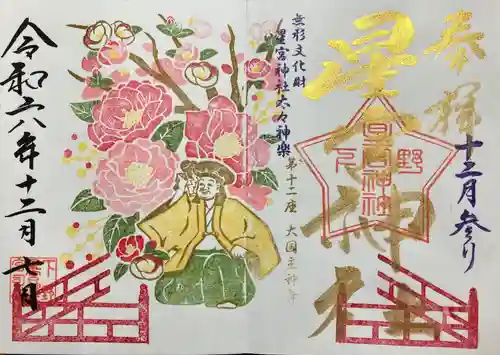 奉拝
十二月参り
星宮神社
下野
星宮神社
無形文化財
星宮神社太々神楽
第十二座 大国主神
令和六年十二月七日